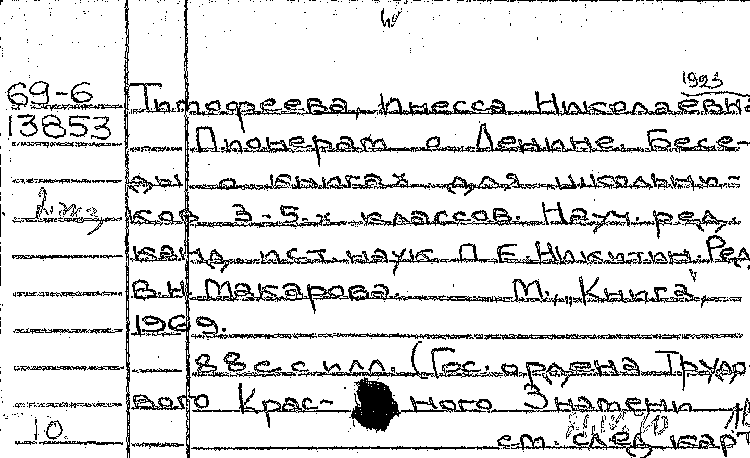 1923
69-6 Тимофеева, Инесса Николаевна
13853 Пионерам о Ленине. Бесе-
ды о книгах для школьни-
ков 3-5-х классов. Науч. ред.
канд. ист. наук П.Е. Никитин. Ред.
В.Н. Макарова. М., „Книга",
1969.
88 с. с илл. (Гос. ордена Трудо-
вого Крас- ного Знамени
10 см. след. карт